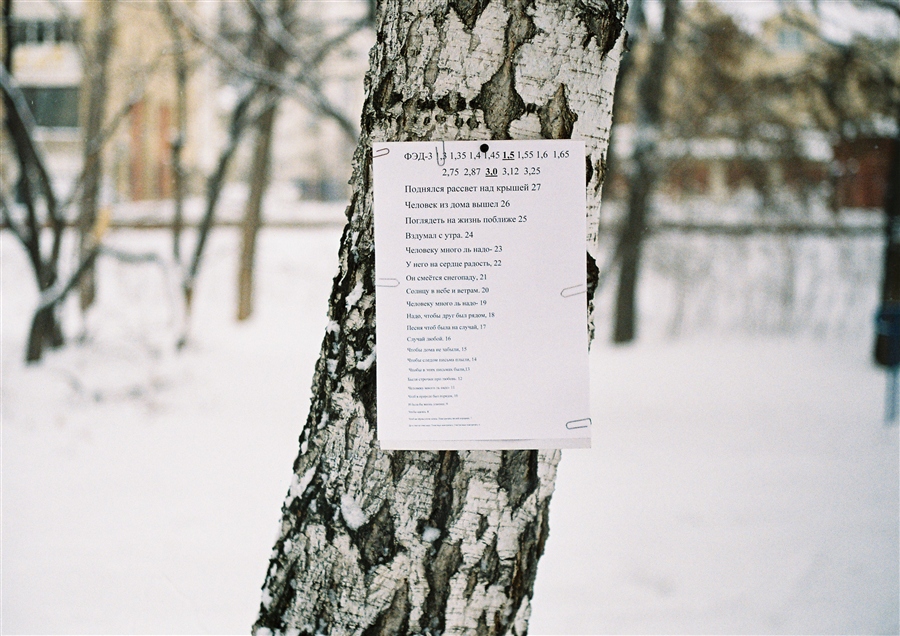 ФЭД-3 1,3 1,35 1,4 1,45 1,5 1,55 1,6 1,65
2,75 2,87 3,0 3,12 3,25
Поднялся рассвет над крышей 27
Человек из дома вышел 26
Поглядеть на жизнь поближе 25
Вздумал с утра. 24
Человеку много ль надо- 23
У него на сердце радость, 22
Он смеётся снегопаду, 21
Солнцу в небе и ветрам. 20
Человеку много ль надо- 19
Надо, чтобы друг был рядом, 18
Песня чтоб была на случай, 17
Случай любой. 16
Чтобы дома не забыли, 15
Чтобы следом письма плыли, 14
Чтобы в этих письмах были,13
Были строчки про любовь. 12
Человеку много ль надо- 11